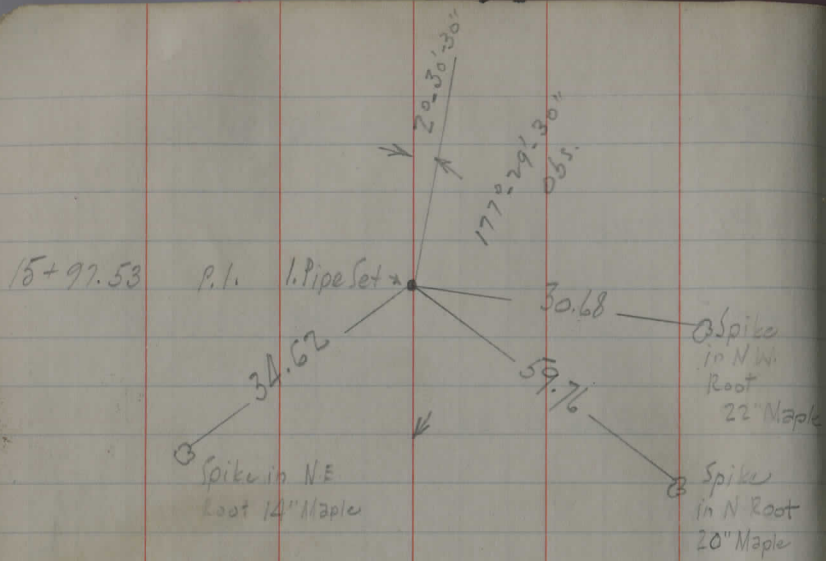 2°-30'-30"
177°-29'-30"
Obs.
15+97.53 P.I. I.Pipe Set
30.68
34.62
59.76
Spike
in N.W.
Root
22" Maple
Spike in N.E
Root 14" Maple
Spike
in N. Root
20" Maple